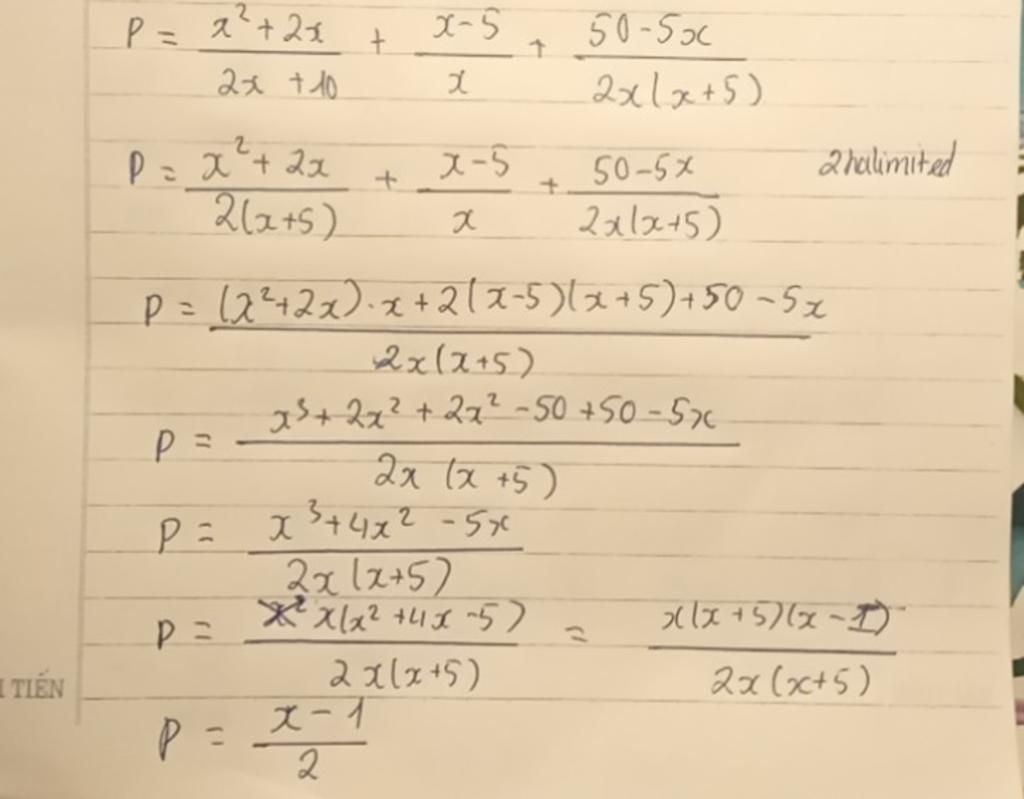 P = \frac{x^2+2x}{2x+10} + \frac{x-5}{x} + \frac{50-5x}{2x(x+5)}
P = \frac{x^2+2x}{2(x+5)} + \frac{x-5}{x} + \frac{50-5x}{2x(x+5)} 2halimited
P = \frac{(x^2+2x).x+2(x-5)(x+5)+50-5x}{2x(x+5)}
P = \frac{x^3+2x^2+2x^2-50+50-5x}{2x(x+5)}
P = \frac{x^3+4x^2-5x}{2x(x+5)}
P = \frac{x(x^2+4x-5)}{2x(x+5)} = \frac{x(x+5)(x-1)}{2x(x+5)}
TIẾN
P = \frac{x-1}{2}